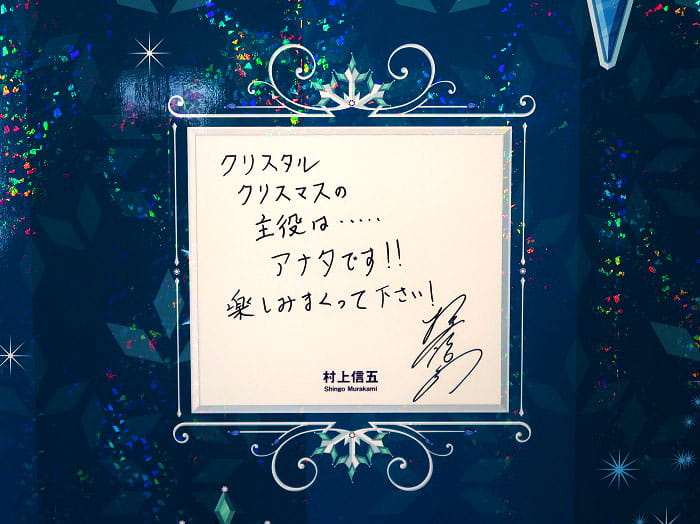 クリスタル
クリスマスの
主役は・・・・・
アナタです!!
楽しみまくって下さい!
村上信五
Shingo Murakami